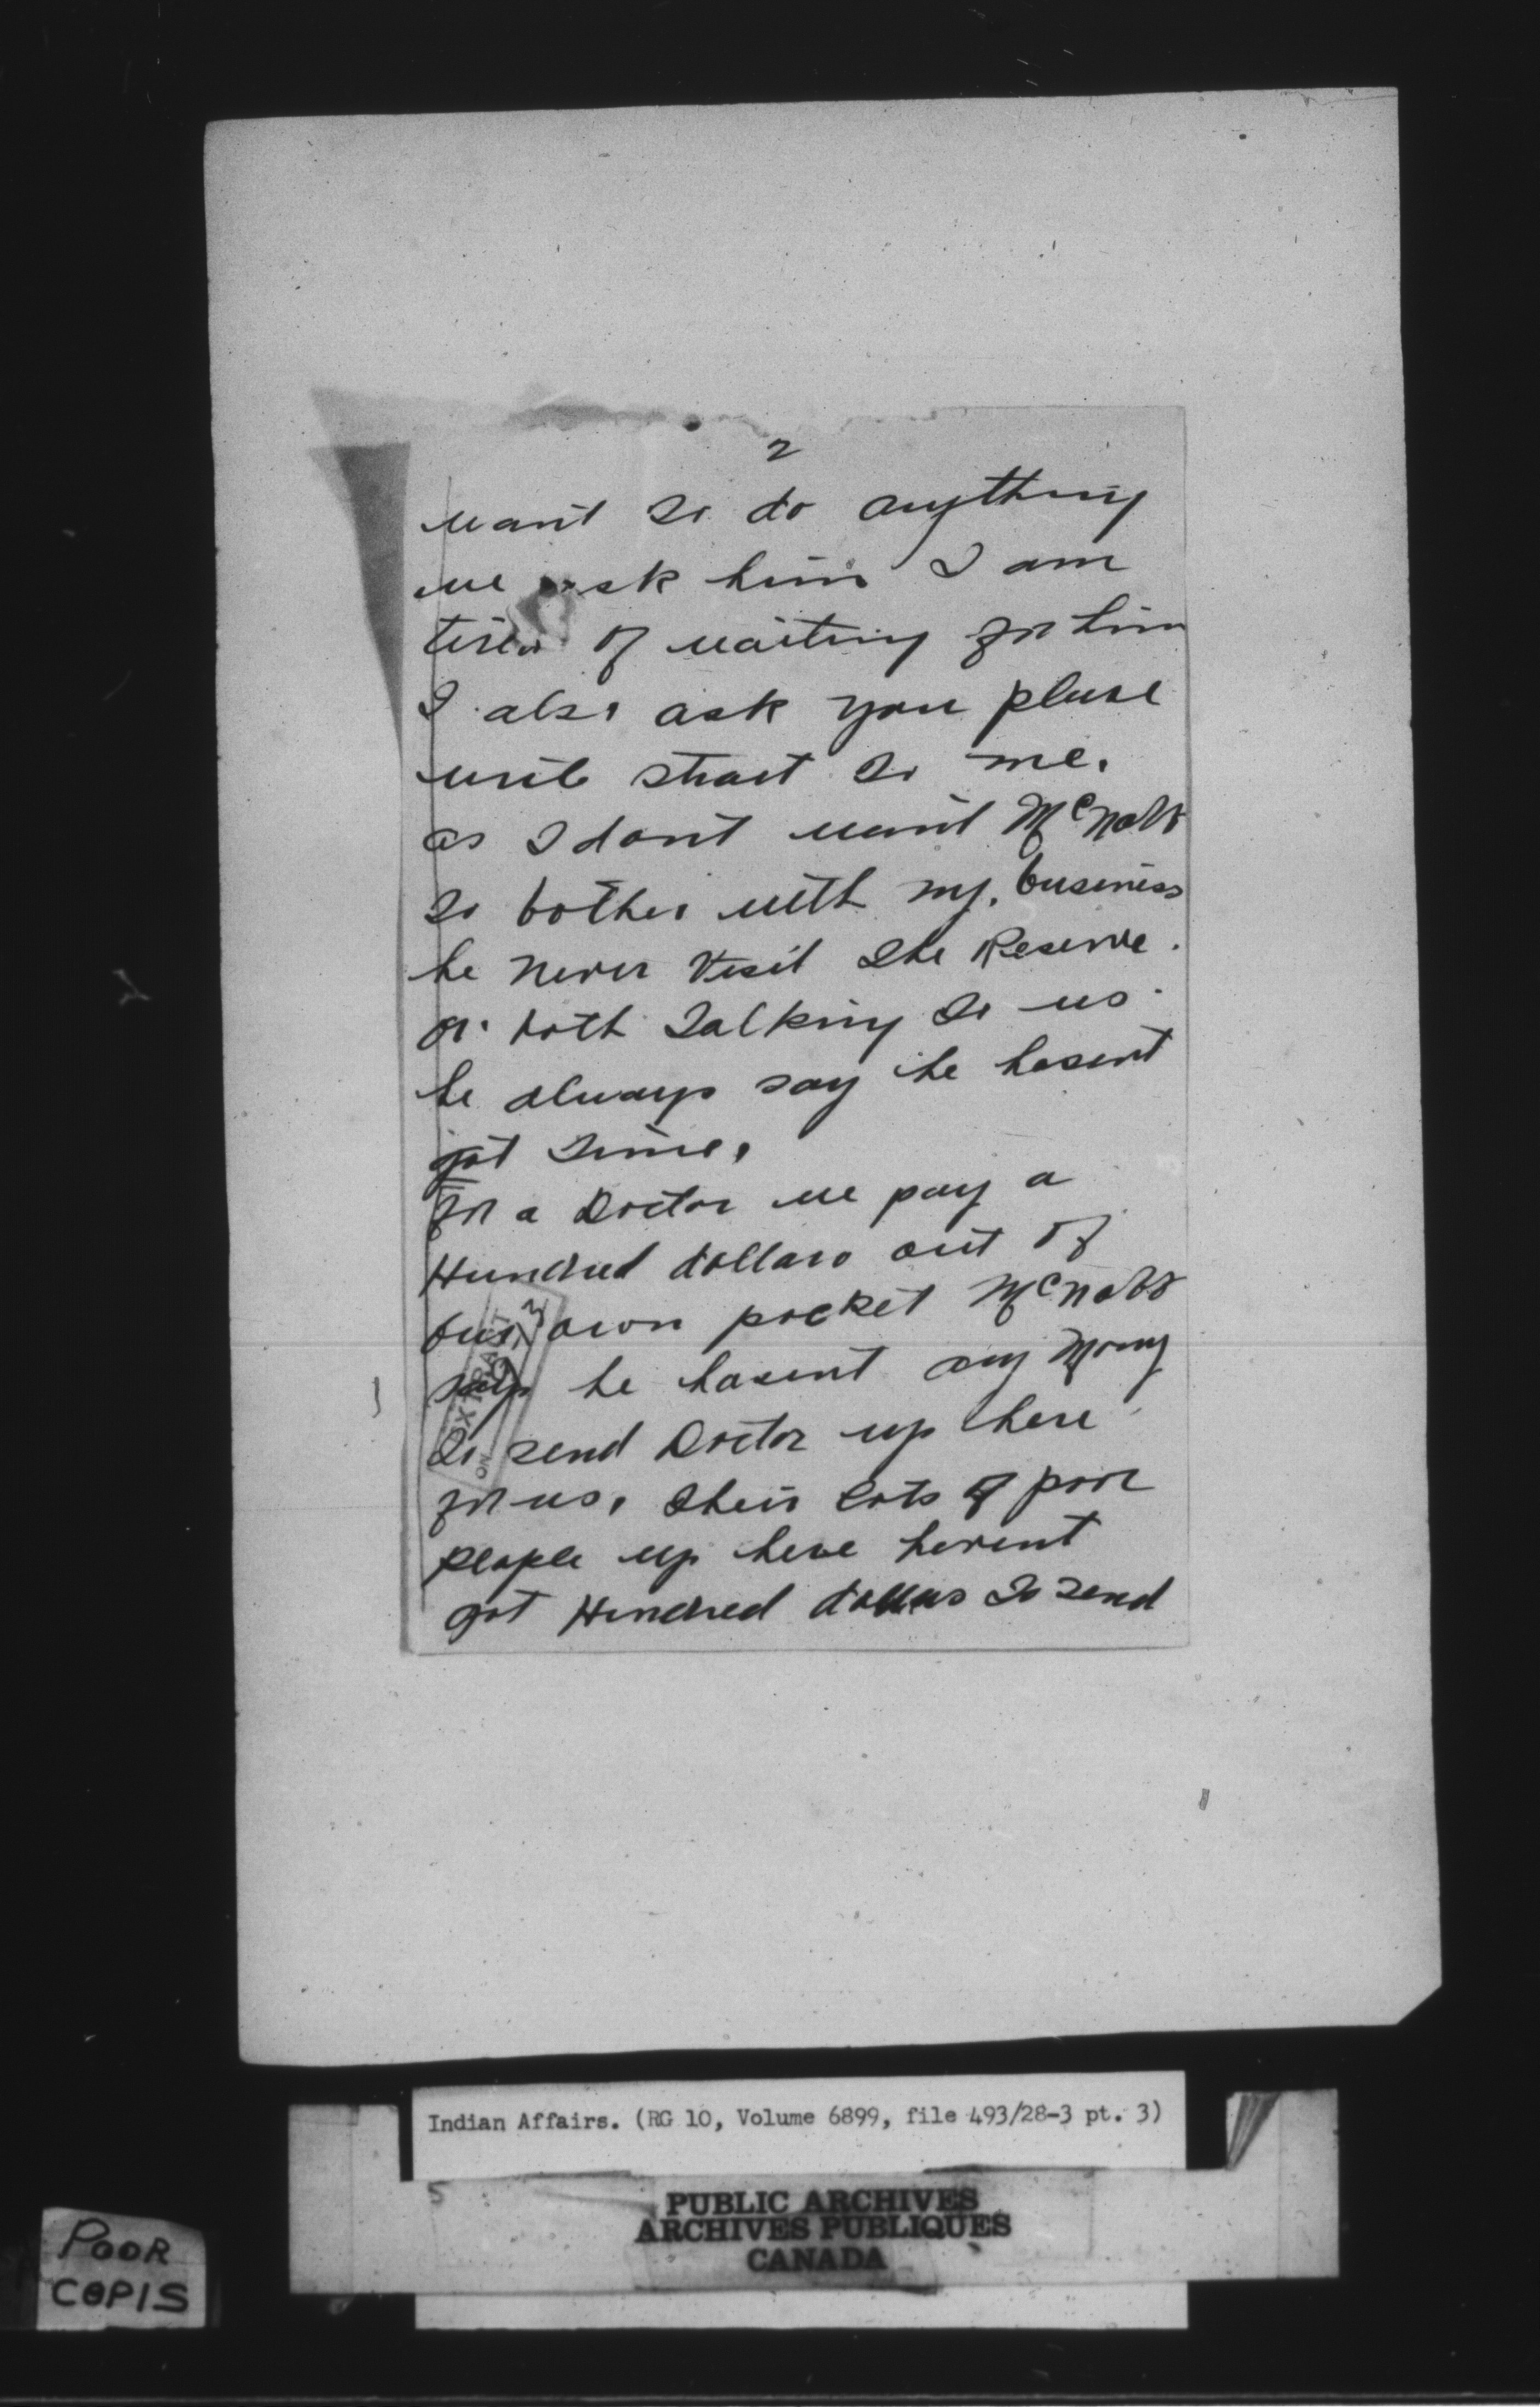 2
want to do anything
we ask him I am
tired of waiting for him
I also ask you please
write strait to me.
as I dont want McNabb
to bother with my. business
he never visit the Reserve.
or both talking to us.
he always say he hasent
got time.
for a Doctor we pay a
Hundred dollars out of
our own pocket McNabb
says he hasent any Mony
to send Doctor up here
for us. their lots of poor
people up here havent
got Hundred dollars to send
EXTRACT
ON
Indian Affairs. (RG 10, Volume 6899, file 493/28-3 pt. 3)
5
PUBLIC ARCHIVES
ARCHIVES PUBLIQUES
CANADA
POOR
COPIS